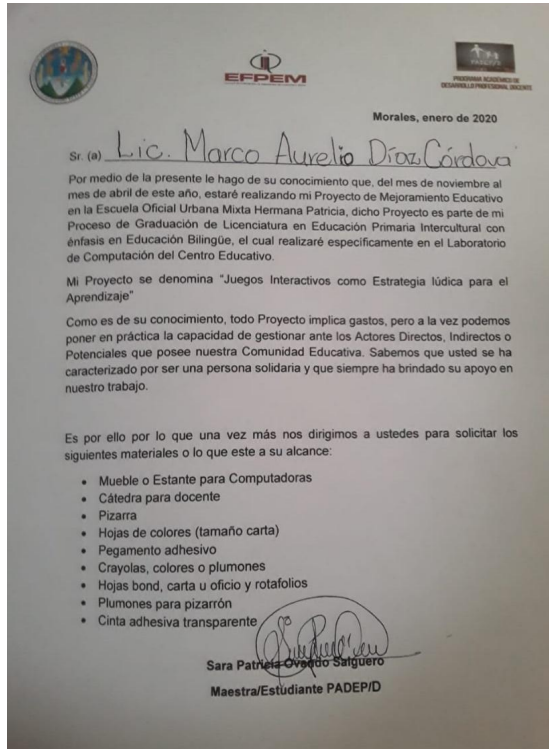 EFPEM
PADEP/D
PROGRAMA ACADÉMICO DE
DESARROLLO PROFESIONAL DOCENTE
Morales, enero de 2020
Sr. (a) Lic. Marco Aurelio Díaz Córdova
Por medio de la presente le hago de su conocimiento que, del mes de noviembre al
mes de abril de este año, estaré realizando mi Proyecto de Mejoramiento Educativo
en la Escuela Oficial Urbana Mixta Hermana Patricia, dicho Proyecto es parte de mi
Proceso de Graduación de Licenciatura en Educación Primaria Intercultural con
énfasis en Educación Bilingüe, el cual realizaré específicamente en el Laboratorio
de Computación del Centro Educativo.
Mi Proyecto se denomina "Juegos Interactivos como Estrategia lúdica para el
Aprendizaje"
Como es de su conocimiento, todo Proyecto implica gastos, pero a la vez podemos
poner en práctica la capacidad de gestionar ante los Actores Directos, Indirectos o
Potenciales que posee nuestra Comunidad Educativa. Sabemos que usted se ha
caracterizado por ser una persona solidaria y que siempre ha brindado su apoyo en
nuestro trabajo.
Es por ello por lo que una vez más nos dirigimos a ustedes para solicitar los
siguientes materiales o lo que este a su alcance:
• Mueble o Estante para Computadoras
• Cátedra para docente
• Pizarra
• Hojas de colores (tamaño carta)
• Pegamento adhesivo
• Crayolas, colores o plumones
• Hojas bond, carta u oficio y rotafolios
• Plumones para pizarrón
• Cinta adhesiva transparente
Sara Patricia Ovando Salguero
Maestra/Estudiante PADEP/D